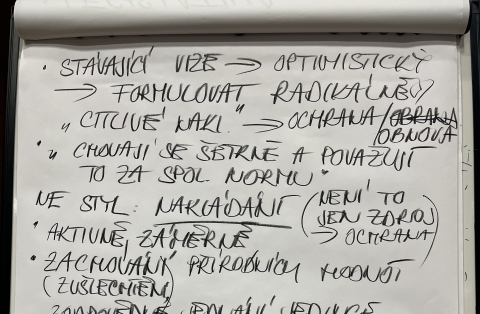 • STÁVAJÍCÍ VIZE → OPTIMISTICKÝ
→ FORMULOVAT RADIKÁLNĚJI
"CITLIVÉ NAKL." → OCHRANA/OBRANA
/OBNOVA
• "CHOVAJÍ SE ŠETRNĚ A POVAŽUJÍ
TO ZA SPOL. NORMU"
NE STYL: NAKLÁDÁNÍ (NENÍ TO
JEN ZDROJ
→ OCHRANA)
• AKTIVNĚ, ZÁMĚRNĚ
• ZACHOVÁNÍ PŘÍRODNÍCH HODNOT
(ZUŠLECHTĚNÍ)
JEDNÁNÍ